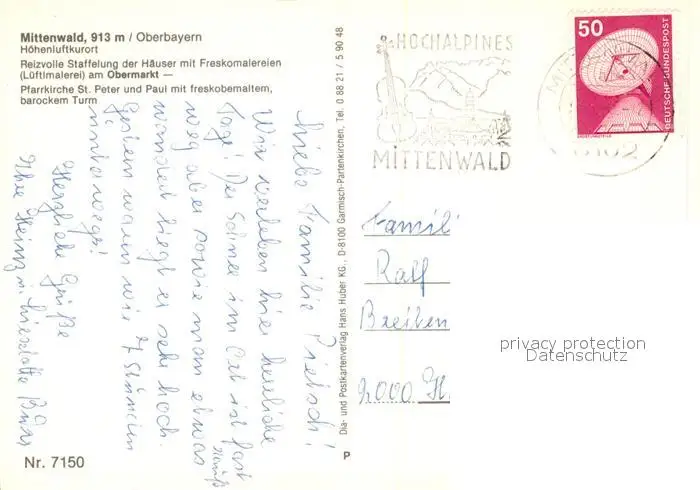 Mittenwald, 913 m / Oberbayern
Höhenluftkurort
Reizvolle Staffelung der Häuser mit Freskomalereien
(Lüftlmalerei) am Obermarkt —
Pfarrkirche St. Peter und Paul mit freskobemaltem,
barockem Turm
Liebe Familie Pietsch!
Wir verleben hier herrliche
Tage! Der Schnee im Ort ist fast
weg aber sowie man etwas
wandert liegt er sehr hoch.
Gestern waren wir 7 Stunden
unterwegs!
Herzliche Grüße
Ihre Heinz u. Lieselotte
Nr. 7150
Dia- und Postkartenverlag Hans Huber KG., D-8100 Garmisch-Partenkirchen, Tel. 0 88 21 / 5 90 48
P
HOCHALPINES
MITTENWALD
50
DEUTSCHE BUNDESPOST
8102
Famili
Ralf
2000 H
privacy protection
Datenschutz